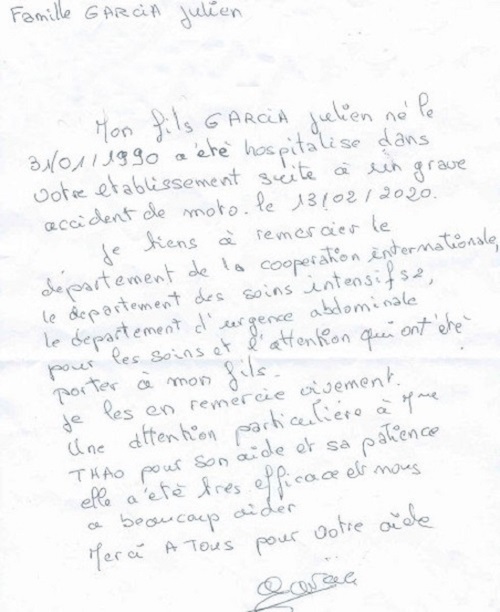 Famille GARCIA Julien
Mon fils GARCIA Julien né le
31/01/1990 a été hospitalise dans
votre etablissement suite à un grave
accident de moto. le 13/02/2020.
Je tiens à remercier le
département de la cooperation internationale,
le departement des soins intensifs 2,
le département d'urgence abdominale
pour les soins et l'attention qui ont été
porter à mon fils.
Je les en remercie vivement.
Une attention particulière à Mme
THAO pour son aide et sa patience
elle a été très efficace et nous
a beaucoup aider
Merci A TOUS pour votre aide
Garcia